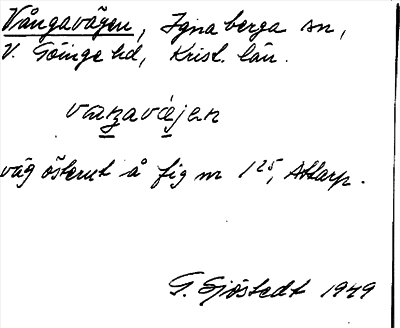 Vångavägen, Ignaberga sn,
V. Göinge hd, Krist. län.
vaŋavä́jen
väg österut å fig nr 1²⁵, Attarp.
G. Sjöstedt 1949